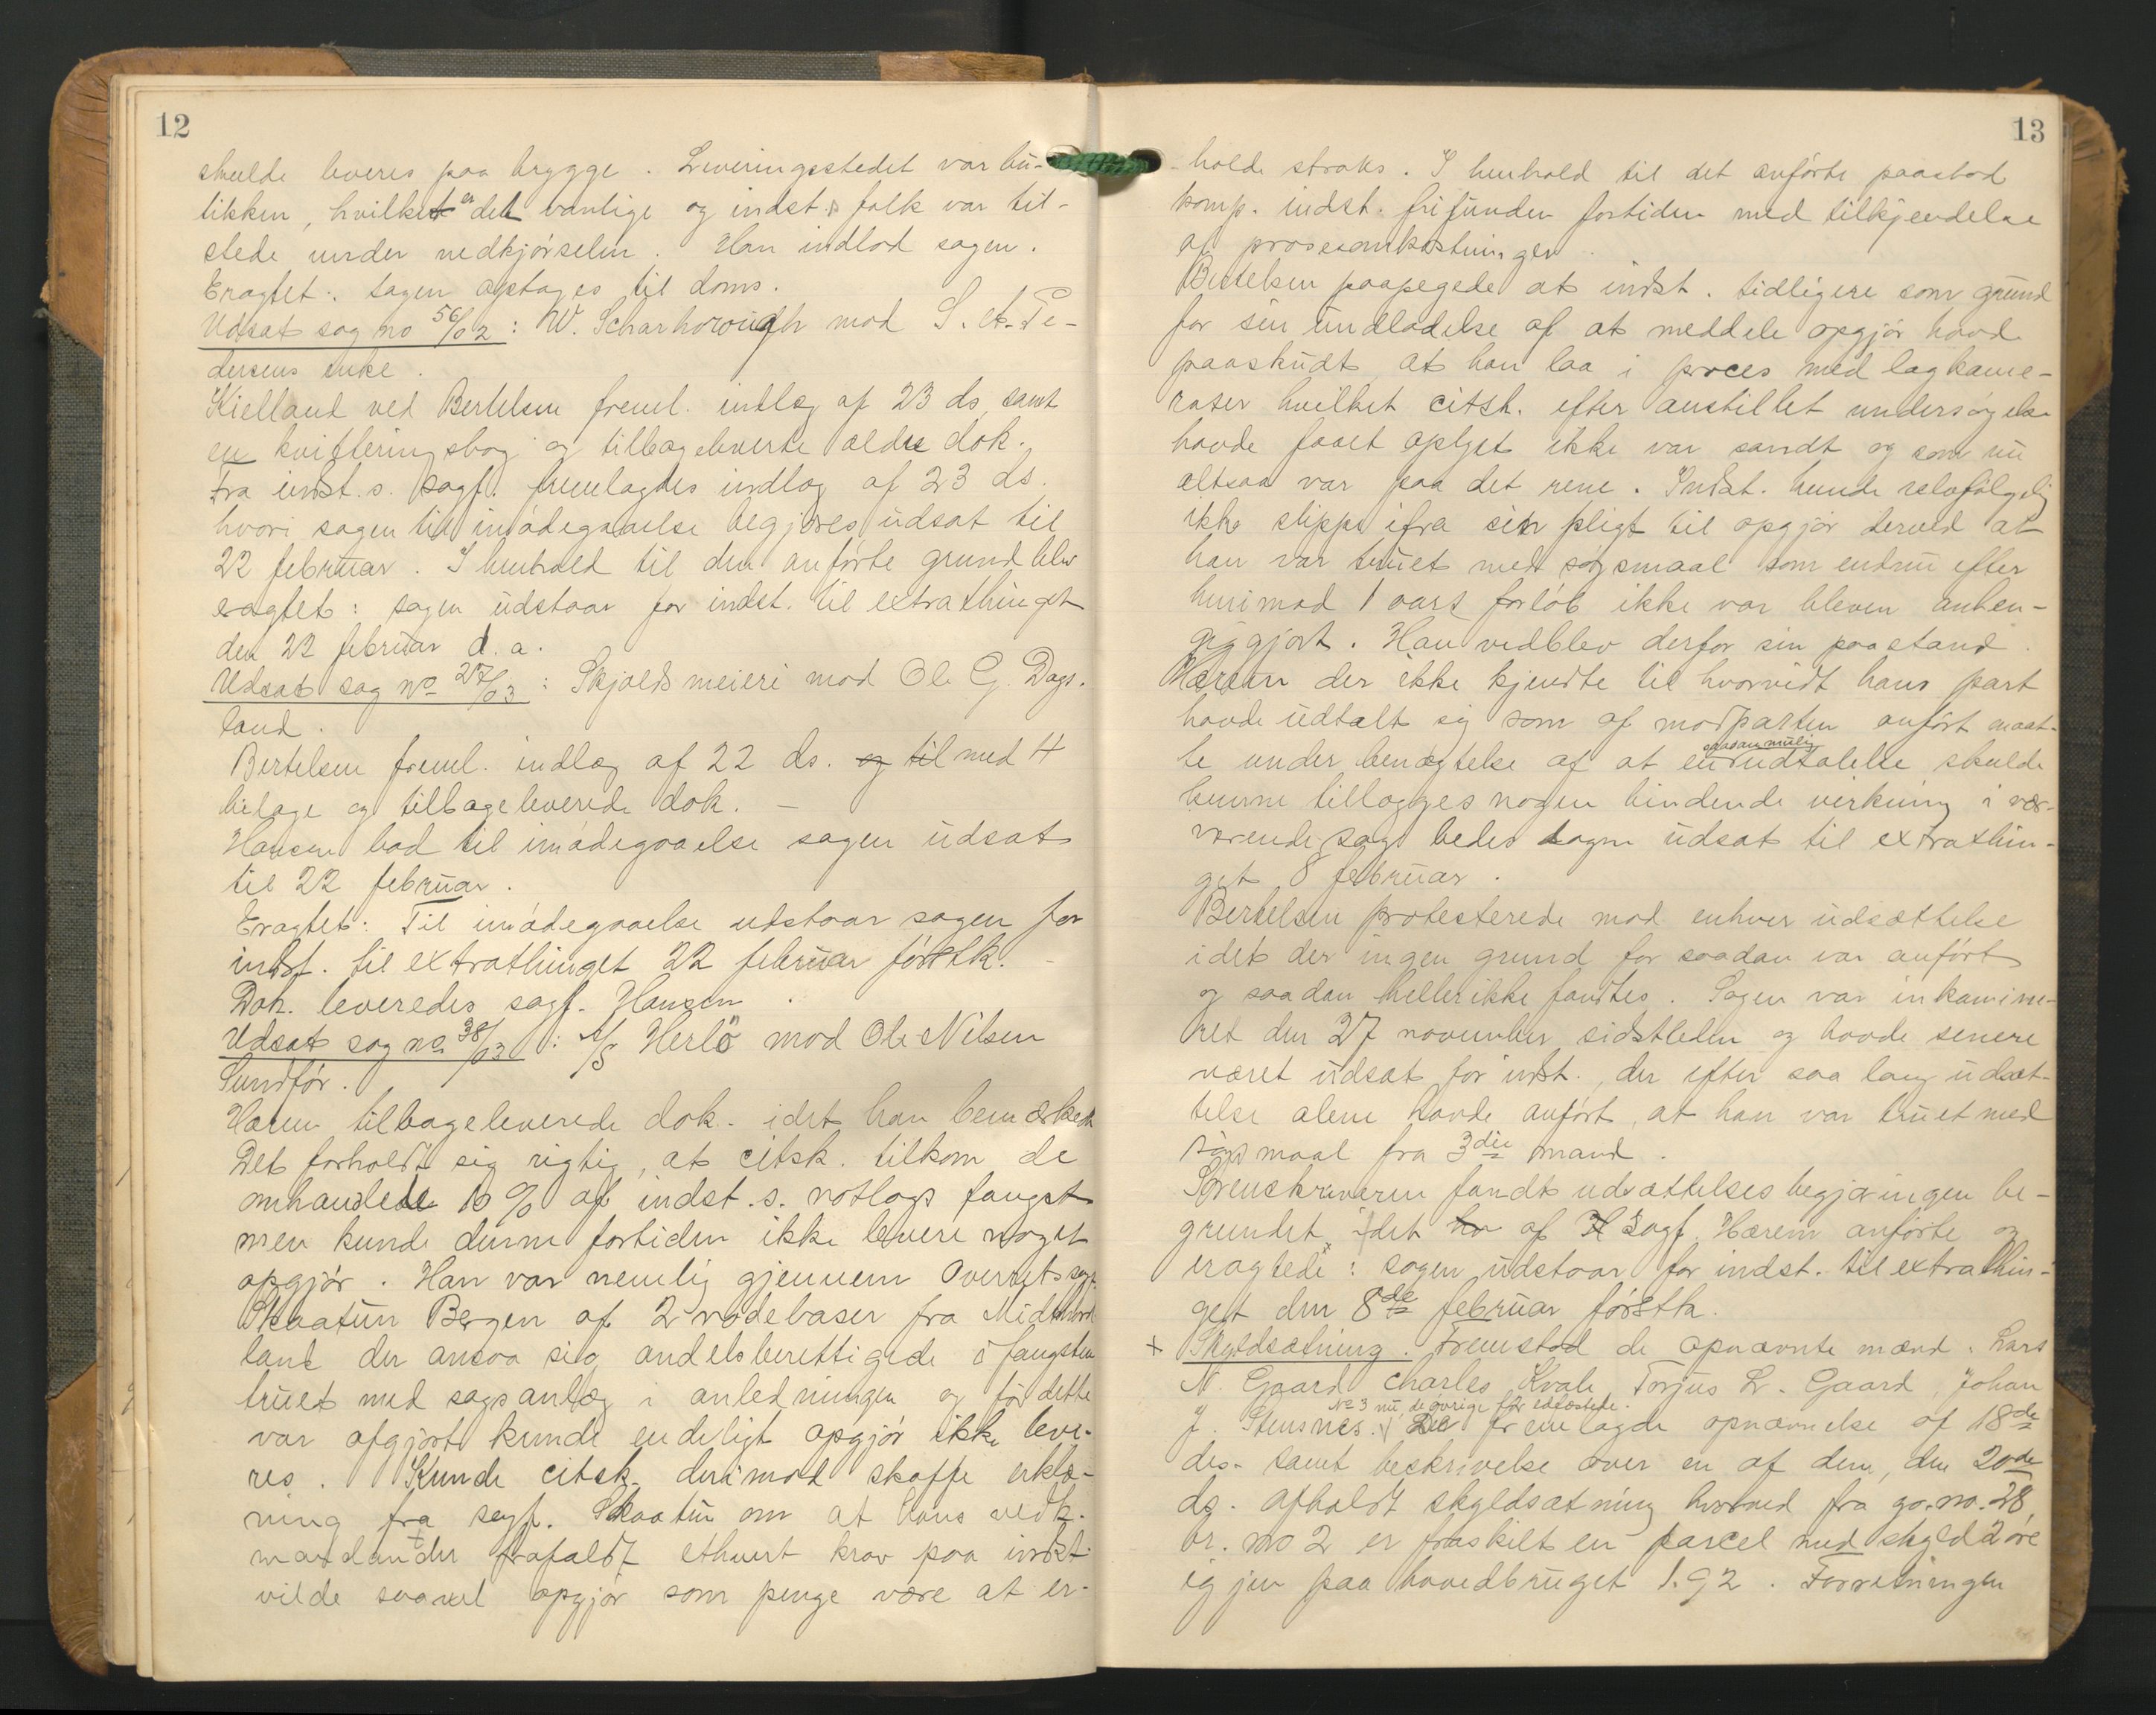 12
skulde leveres paa brygge. Leveringsstedet var bu-
tikken, hvilket er det vanlige og indst.s folk var til-
stede under nedkjørselen. Han indlod sagen.
Eragtet: Sagen optages til doms.
Udsat sag no 56/02: W. Scharhorough mod S. et. Pe-
dersens enke.
Kielland ved Bertelsen freml. indlæg af 23 ds, samt
en kvitteringsbog og tilbageleverte ældre dok.
Fra indst.s. sagf. fremlagdes indlæg af 23 ds.
hvori sagen til imødegaaelse begjæres udsat til
22 februar. I henhold til den anførte grund blev
eragtet: sagen udstaar for indst. til extrathinget
den 22 februar d.a.
Udsat sag no 27/03: Skjolds meieri mod Ole G. Dags-
land.
Bertelsen freml. indlæg af 22 ds. og til med 4
bilage og tilbageleverede dok. –
Hansen bad til imødegaaelse sagen udsat
til 22 februar.
Eragtet: Til imødegaaelse udstaar sagen for
indst. til extrathinget 22 februar førstk. –
Dok. leveredes sagf. Hansen.
Udsat sag no 38/03: A/S Herlö mod Ole Nilsen
Sundfør.
Hærem tilbageleverede dok. idet han bemærkede
Det forholdt sig rigtig, at citsk. tilkom de
omhandlede 10 % af indst.s. notlags fangst
men kunde denne fortiden ikke levere noget
opgjør. Han var nemlig gjennem Overretssagf.
Skaatun Bergen af 2 vadebaser fra Midthord-
land der ansaa sig andelsberettigede i fangsten
truet med sagsanlæg i anledningen og før dette
var afgjort kunde endeligt opgjør ikke leve-
res. Kunde citsk. derimod skaffe erklæ-
ring fra sagf. Skaatun om at hans vedk.
mandanter frafaldt ethvert krav paa indst.
vilde saavel opgjør som penge være at er-
13
holde straks. I henhold til det anførte paastod
komp. indst. frifunden fortiden med tilkjendelse
af prosesomkostninger.
Bertelsen paapegede at indst. tidligere som grund
for sin undladelse af at meddele opgjør havde
paaskudt at han laa i proces med lagkame-
rater hvilket citsk. efter anstillet undersøgelse
havde faaet oplyst ikke var sandt og som nu
altsaa var paa det rene. Indst. kunde selvfølgelig
ikke slippe ifra sin pligt til opgjør derved at
han var truet med sagsmaal som endnu efter
henimod 1 aars forløb ikke var bleven anhen-
giggjort. Han vedblev derfor sin paastand.
Hærem der ikke kjendte til hvorvidt hans part
havde udtalt sig som af modparten anført maat-
te under benægtelse af at en saadan mulig udtalelse skulde
kunne tillægges nogen bindende virkning i nær-
værende sag bedes sagen udsat til extrathin-
get 8 februar.
Bertelsen protesterede mod enhver udsættelse
idet der ingen grund for saadan var anført
og saadan heller ikke fandtes. Sagen var inkamine-
ret den 27 november sidstleden og havde senere
været udsat for indst., der efter saa lang udsæt-
telse alene havde anført, at han var truet med
søgsmaal fra 3die mand.
Sorenskriveren fandt udsættelsesbegjæringen be-
grundet i det af Sagf. Hærem anførte og
eragtede: sagen udstaar for indst. til extrathin-
get den 8de februar førstk.
+ Skyldsætning. Fremstod de opnævnte mænd: Lars
N. Gaard, Charles Kvale, Torjus L. Gaard, Johan
No 3 nu, de øvrige før edfæstede.
J. Stensnes. De fremlagde opnævnelse af 18de
ds. samt beskrivelse over en af dem, den 20de
ds. afholdt skyldsætning hvorved fra ga.no. 28,
br. no 2 er fraskilt en parcel med skyld 2 øre
igjen paa hovedbruget 1.92. Forretningen